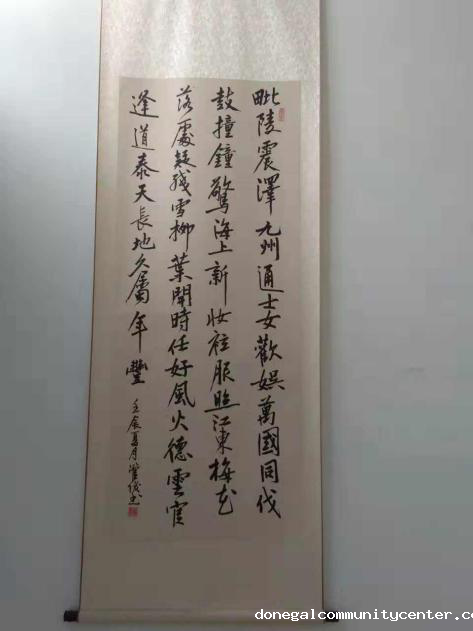 毗陵震澤九州通士女歡娛萬國同伐
鼓撞鐘驚海上新妝袨服照江東梅花
落處疑殘雪柳葉開時任好風火德雲官
逢道泰天長地久屬年豐
壬辰夏月
donegalcommunitycenter.c